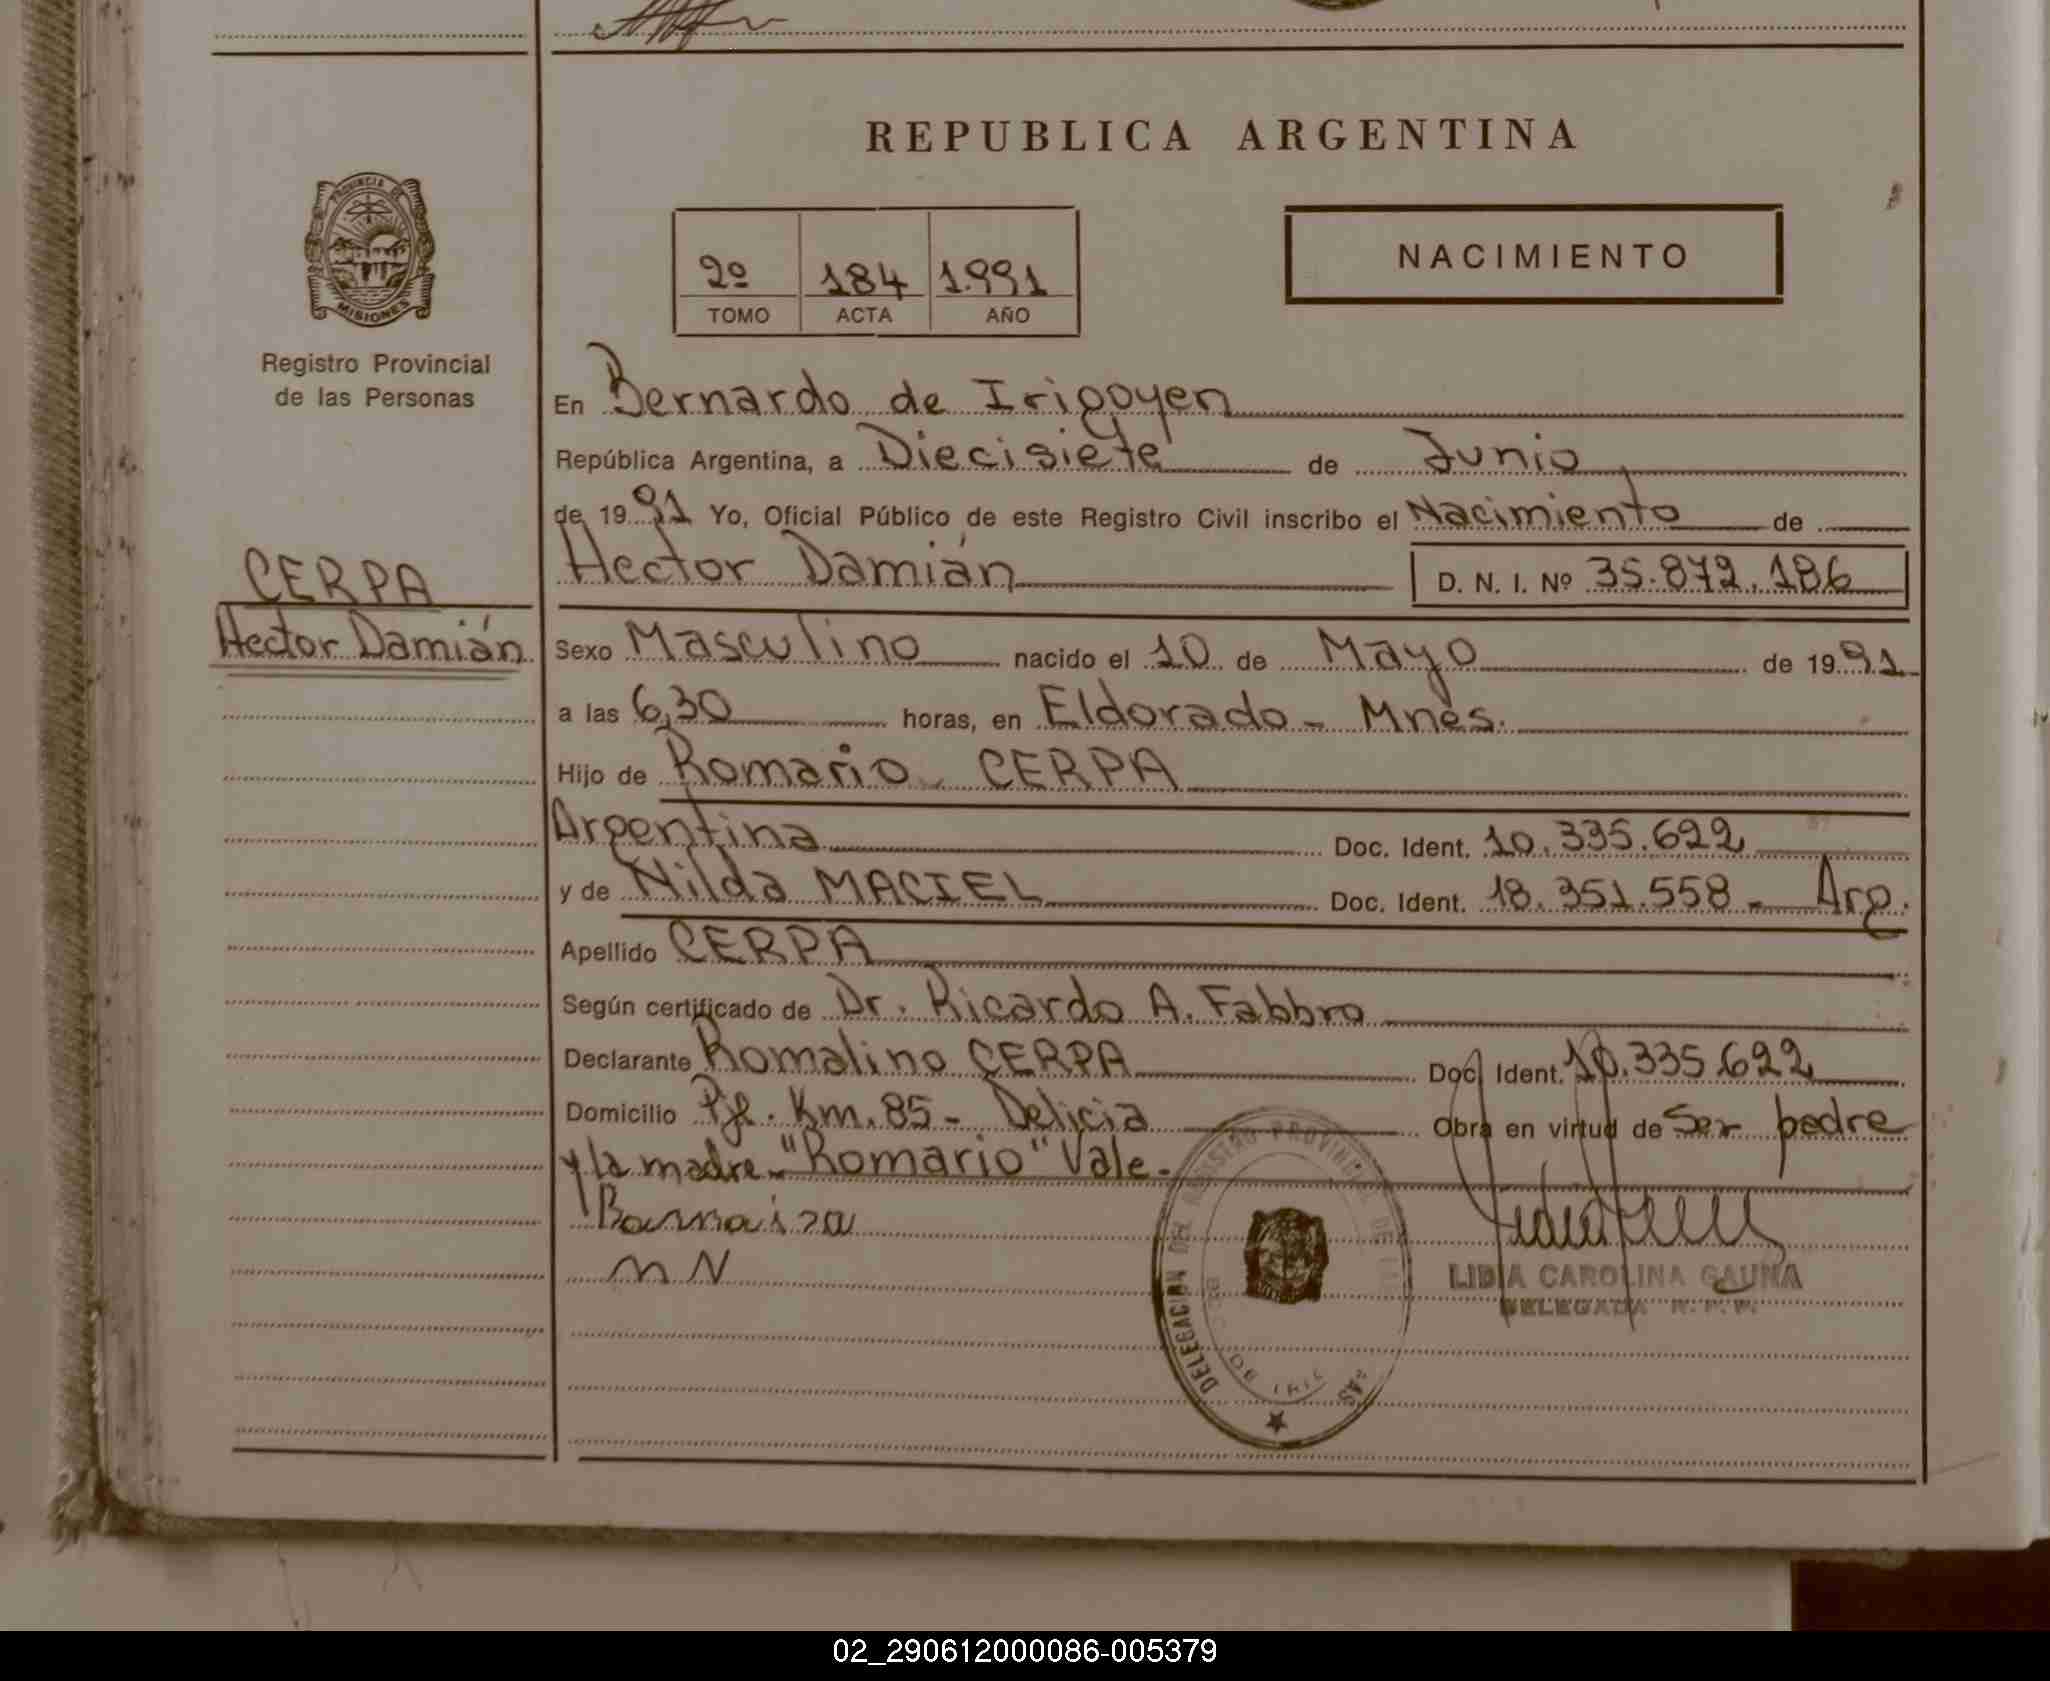 REPUBLICA ARGENTINA
PROVINCIA DE
MISIONES
Registro Provincial
de las Personas
2º 184 1.991
TOMO ACTA AÑO
NACIMIENTO
En Bernardo de Irigoyen
República Argentina, a Diecisiete de Junio
de 1991 Yo, Oficial Público de este Registro Civil inscribo el Nacimiento de
Hector Damián D. N. I. Nº 35.872.186
CERPA
Hector Damián
Sexo Masculino nacido el 10 de Mayo de 1991
a las 6,30 horas, en Eldorado - Mnes.
Hijo de Romario CERPA
Argentina Doc. Ident. 10.335.622
y de Nilda MACIEL Doc. Ident. 18.351.558 - Arg.
Apellido CERPA
Según certificado de Dr. Ricardo A. Fabbro
Declarante Romalino CERPA Doc. Ident. 10.335.622
Domicilio Pje. Km. 85 - Delicia Obra en virtud de Ser padre
y la madre - "Romario" Vale -
DELEGACION DEL REGISTRO PROVINCIAL DE LAS
DE IRIG
LIDIA CAROLINA GAUNA
DELEGADA R. P. P.
02_290612000086-005379